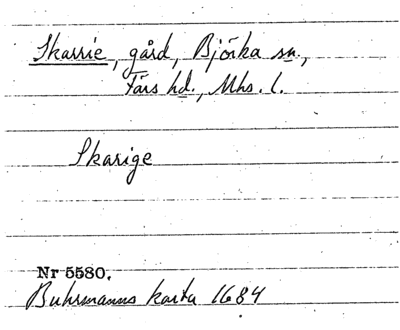 Skarrie, gård, Björka sn.,
Färs hd., Mhs. l.
Skarige
Nr 5580.
Buhrmanns karta 1684